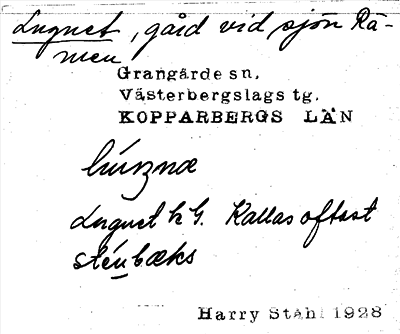 Lugnet, gård vid sjön Rä-
men
Grangärde sn.
Västerbergslags tg.
KOPPARBERGS LÄN
Lugnet k G. Kallas oftast
sténbæks
Harry Ståhl 1928